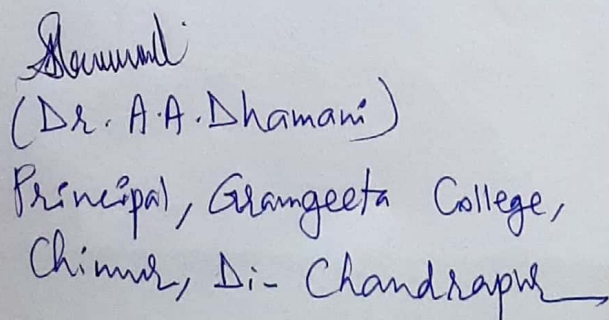 (Dr. A.A. Dhamani)
Principal, Gramgeeta College,
Chimur, Di- Chandrapur